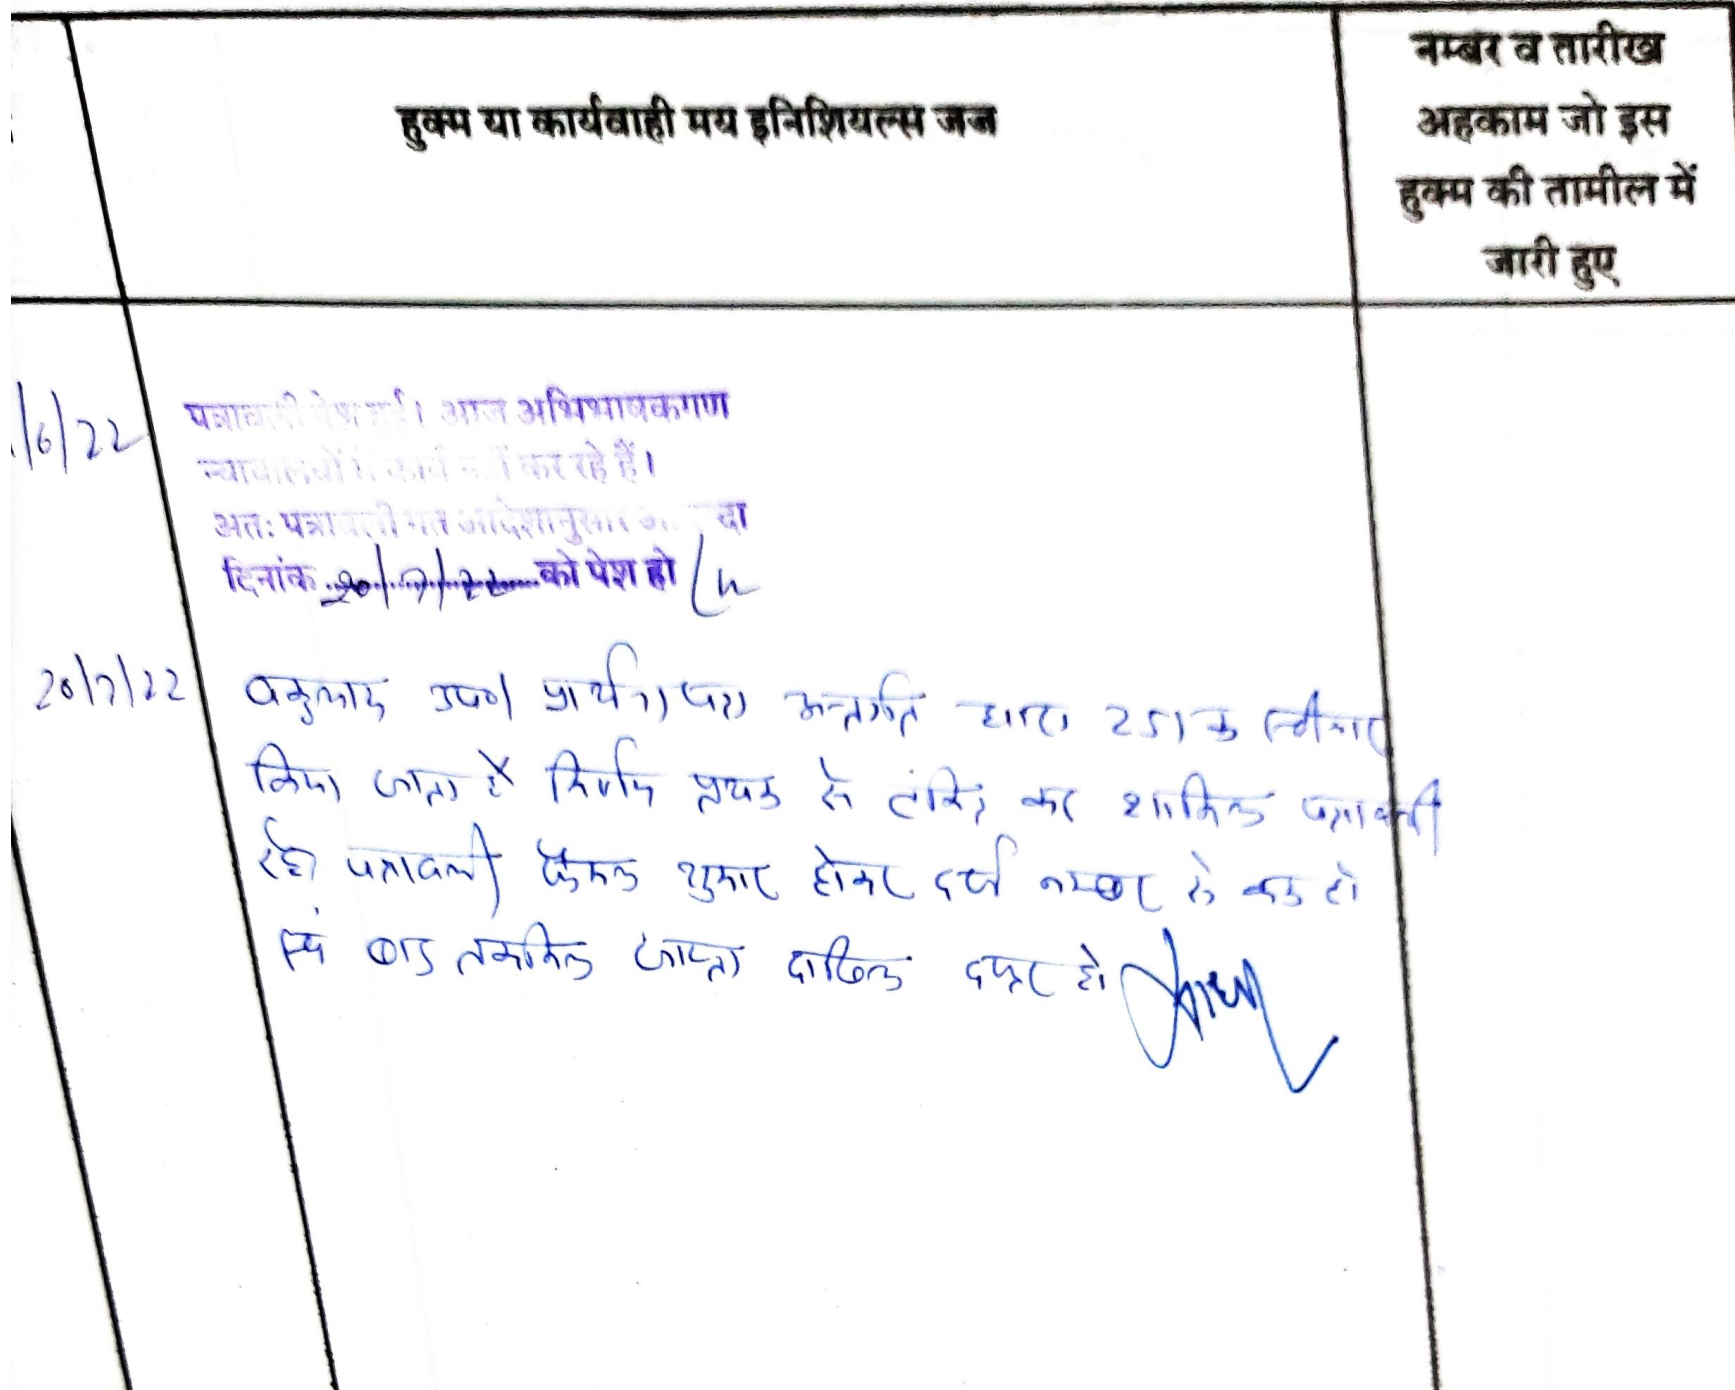 हुक्म या कार्यवाही मय इनिशियल्स जज
नम्बर व तारीख
अहकाम जो इस
हुक्म की तामील में
जारी हुए
/6/22
पत्रावली पेश हुई। आज अभिभाषकगण
न्यायालयों में कार्य नहीं कर रहे हैं।
अतः पत्रावली गत आदेशानुसार दा
दिनांक 20/7/22 को पेश हो
20/7/22
प्रार्थना पत्र अन्तर्गत धारा 251 क स्वीकार
किया जाता है निर्णय पृथक से टंकित कर शामिल पत्रावली
रहे पत्रावली फैसल शुमार होकर दर्ज नम्बर से कम हो
एवं बाद तकमिल जाप्ता दाखिल दफ्तर हो